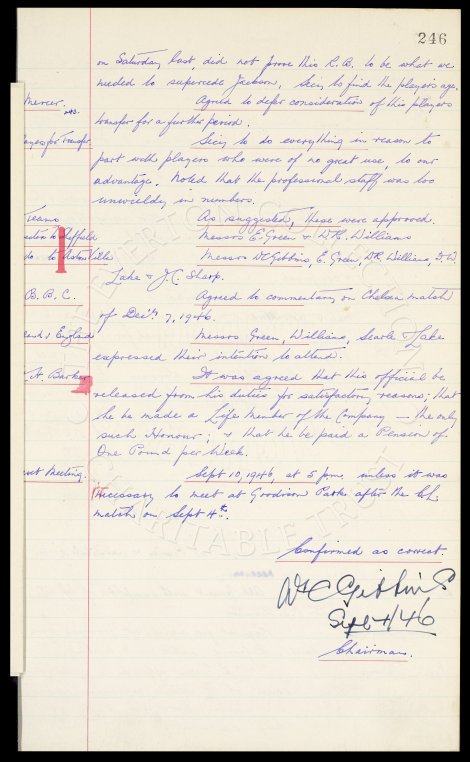 246
on Saturday last, did not prove this R.B. to be what we
needed to supercede Jackson. Secy to find the players age.
Mercer. Agreed to defer consideration of this players
transfer for a further period.
ayers for Transfer Secy to do everything in reason to
part with players who were of no great use, to our
advantage. Noted that the professional staff was too
unwieldy in numbers.
Teams As suggested, these were approved.
ectors to Sheffield Messrs E. Green & W.R. Williams
do. to Aston Villa Messrs W.C. Gibbins, E. Green, W.R. Williams, D.W.
Lake & J.C. Sharp.
B.B.C. Agreed to commentary on Chelsea match
of Decr. 7, 1946.
land v England Messrs Green, Williams, Searle & Lake
expressed their intention to attend.
H. Barker It was agreed that this official be
released from his duties for satisfactory reasons; that
he be made a Life Member of the Company — the only
such Honour; & that he be paid a Pension of
One Pound per Week.
ext Meeting. Sept 10, 1946, at 5 pm. unless it was
necessary to meet at Goodison Park after the CL
match on Sept 4th.
Confirmed as correct.
W C Gibbins
Sept 4/46
Chairman.
EVERTON COLLECTION
CHARITABLE TRUST